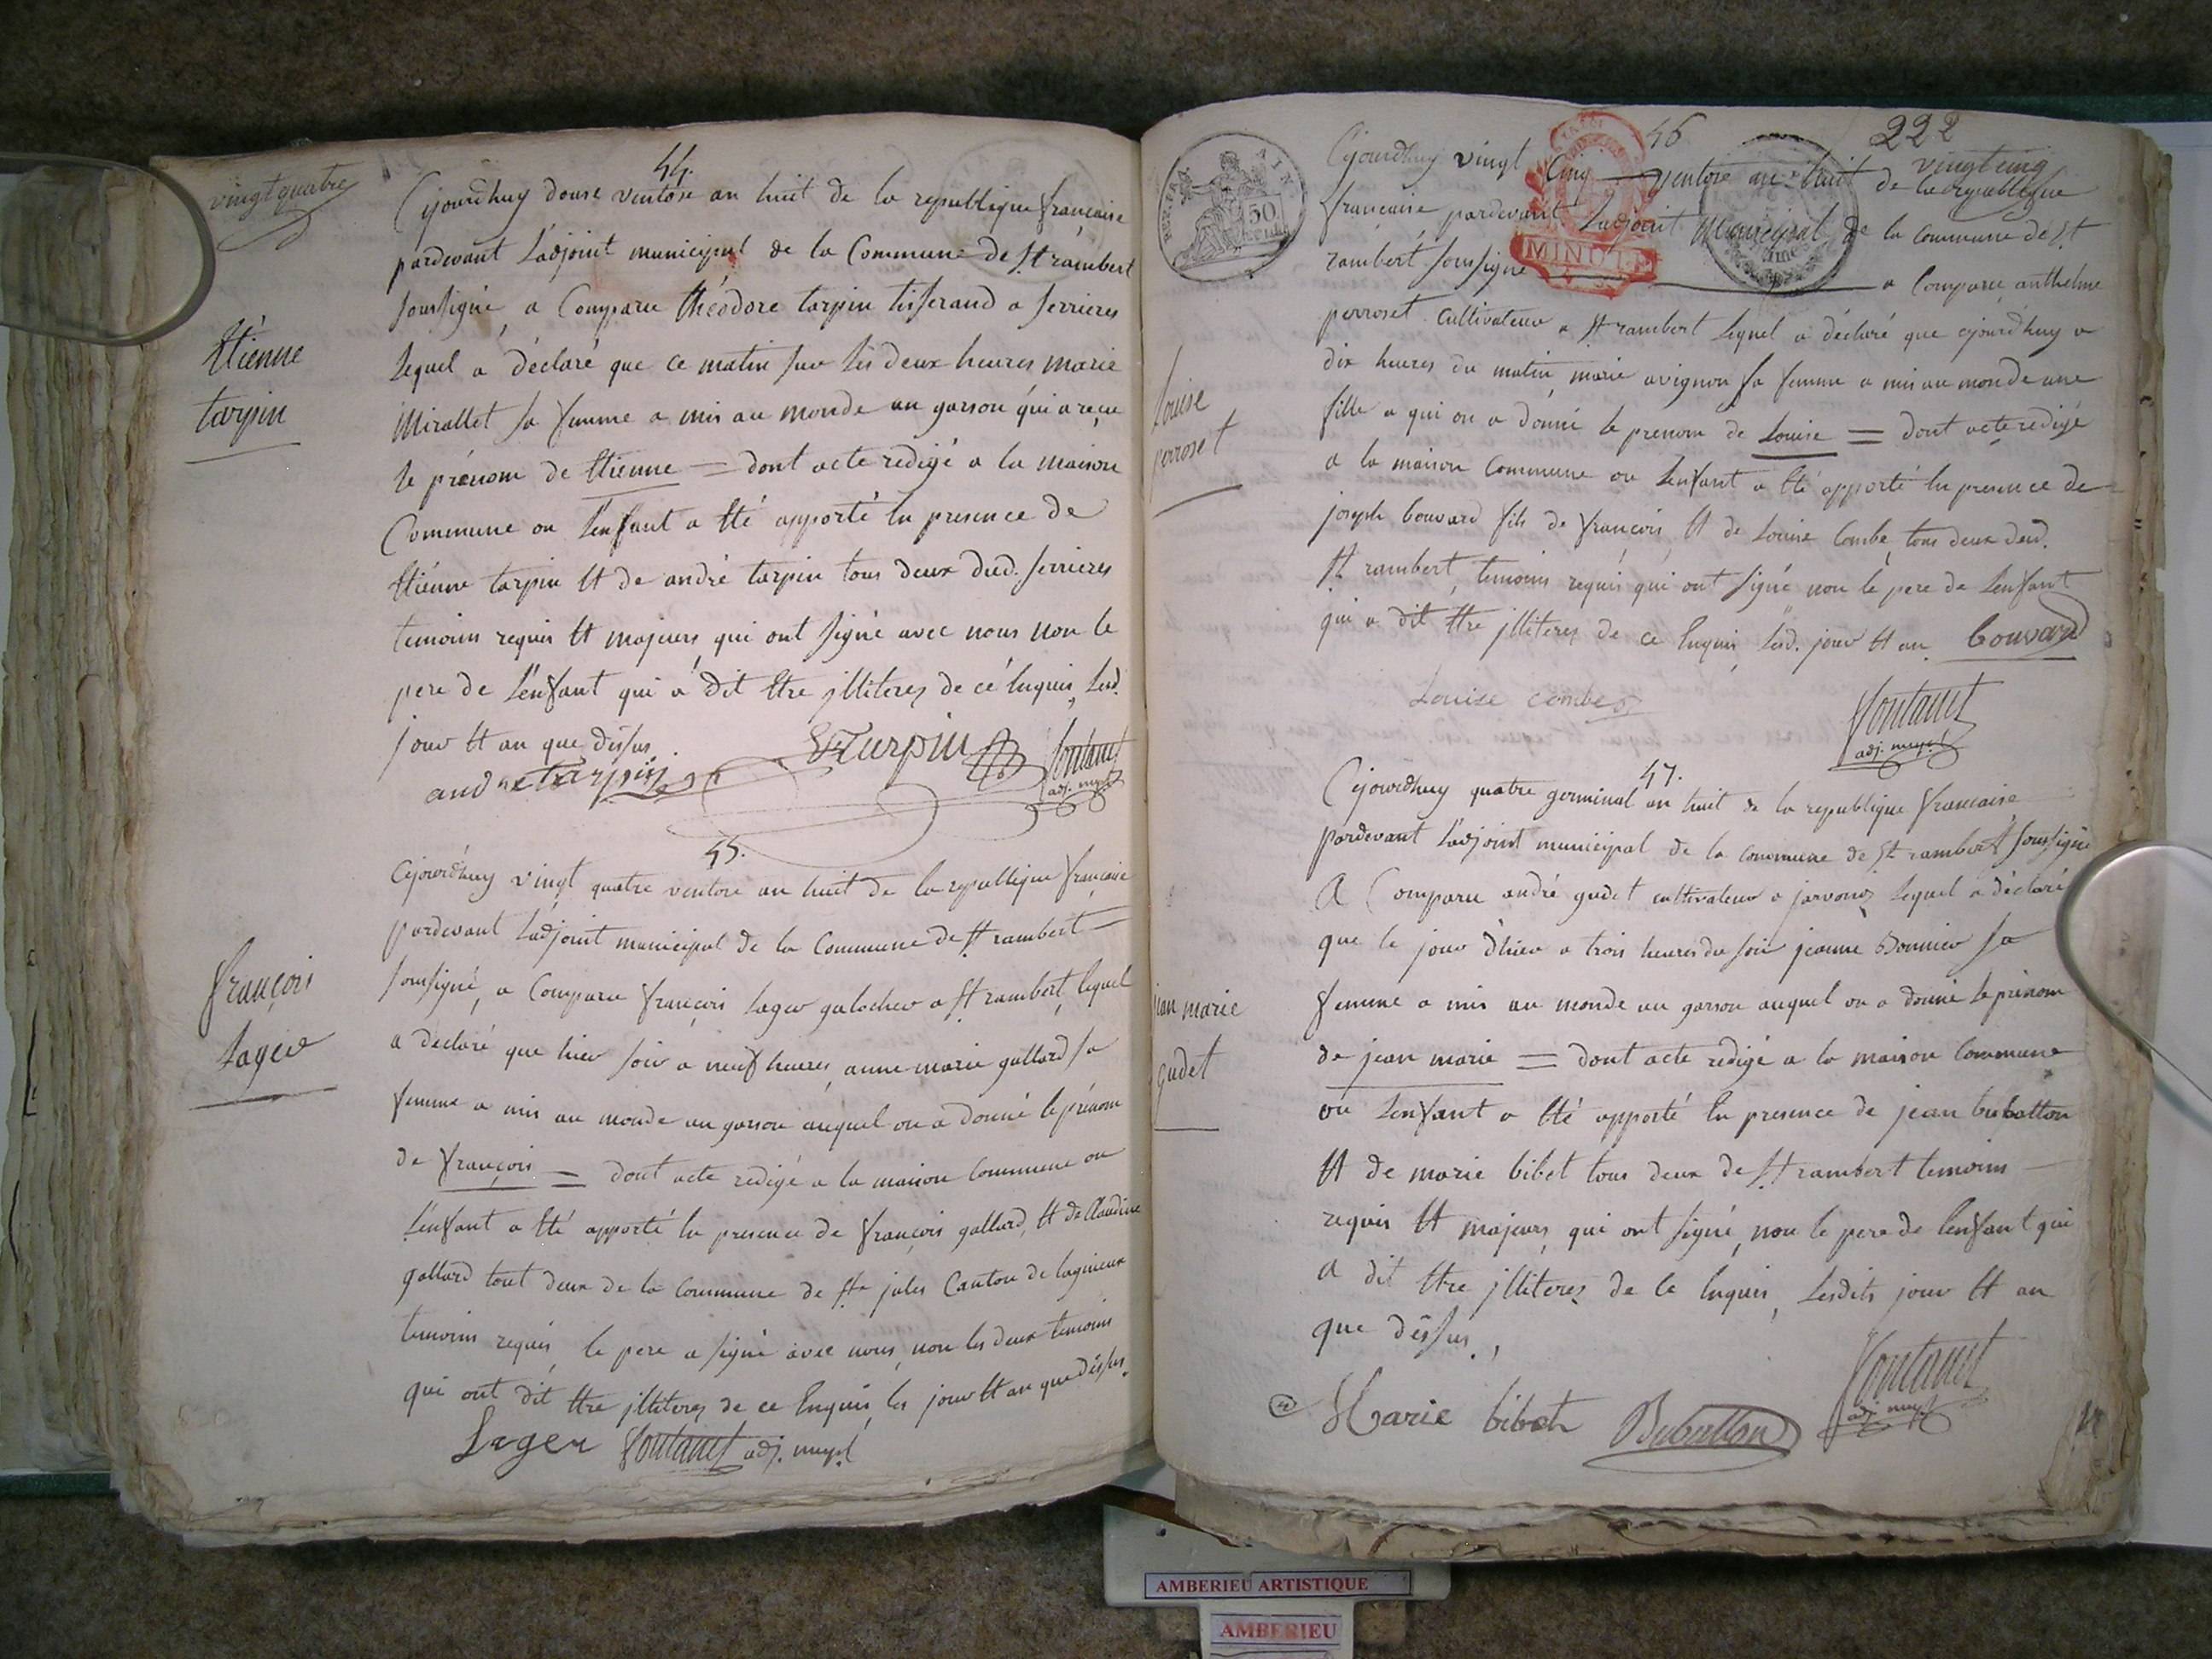 vingt quatre
44.
Cejourdhuy douse ventose an huit de la republique francaise
pardevant L'adjoint municipal de la Commune de St rambert
soussigné, a Comparu théodore tarpin tisserand a serrieres
Lequel a déclaré que ce matin sur Les deux heures marie
Mirallet sa femme a mis au monde un garson qui a reçu
le prénom de Etienne = dont acte redigé a la maison
Commune ou L'enfant a eté apporté En presence de
Etienne tarpin Et de andré tarpin tous deux dud. serrieres
temoins requis Et majeurs, qui ont signé avec nous non le
pere de L'enfant qui a dit Etre jlliterez de cé Enquis, Lesd.
jour Et an que dessus.
Etienne
tarpin
andre tarpin
E Turpin
fontanet
adj. mupl
45.
Cejourdhuy vingt quatre ventose an huit de la republique francaise
pardevant L'adjoint municipal de la Commune de St rambert
soussigné, a Comparu françois Lager galocher a St rambert, lequel
a declaré que hier soir a neuf heures, anne marie gallard sa
femme a mis au monde un garson auquel on a donné le prénom
de françois = dont acte redigé a la maison Commune ou
L'enfant a Eté apporté En presence de françois gallard, Et de Claudine
gallard tout deux de la Commune de Ste julie Canton de lagnieux
temoins requis, le pere a signé avec nous, non les deux temoins
qui ont dit Etre jlliterez de ce Enquis, les jour Et an que dessus.
françois
Lager
Lager fontanet adj. mupl
46
222
vingt cinq
Cejourdhuy vingt Cinq ventose an huit de la republique
francaise pardevant Ladjoint Municipal de la Commune de St
rambert soussigné a Comparu anthelme
perroset Cultivateur a St rambert Lequel a déclaré que cejourdhuy a
dix heures du matin, marie avignon sa femme a mis au monde une
fille a qui on a donné le prenom de Louise = dont acte redigé
a la maison Commune ou L'enfant a Eté apporté En presence de
joseph bouvard fils de françois, Et de Louise Combe, tous deux dud.
St rambert, temoins requis qui ont signé non le pere de L'enfant
qui a dit Etre jlliterez de ce Enquis, Lesd. jour Et an. bouvard
Louise
perroset
Louise combe
fontanet
adj. mupl
MINUTE
REP. FRA.
AIN
50
47.
Cejourdhuy quatre germinal an huit de la republique francaise
pardevant L'adjoint municipal de la commune de St rambert soussigné
A Comparu andré gudet cultivateur a javornoz Lequel a déclaré
que le jour d'hier a trois heures du soir jeanne Bonnier sa
femme a mis au monde un garson auquel on a donné le prenom
de jean marie = dont acte redigé a la maison Commune
ou L'enfant a Eté apporté En presence de jean bubatton
Et de marie bibet tous deux de St rambert temoins
requis Et majeurs, qui ont signé, non le pere de lenfant qui
a dit Etre jlliterez de ce Enquis, Lesdits jour Et an
que dessus.
jean marie
gudet
Marie bibet
Bubatton
fontanet
adj. mupl
AMBERIEU ARTISTIQUE
AMBERIEU